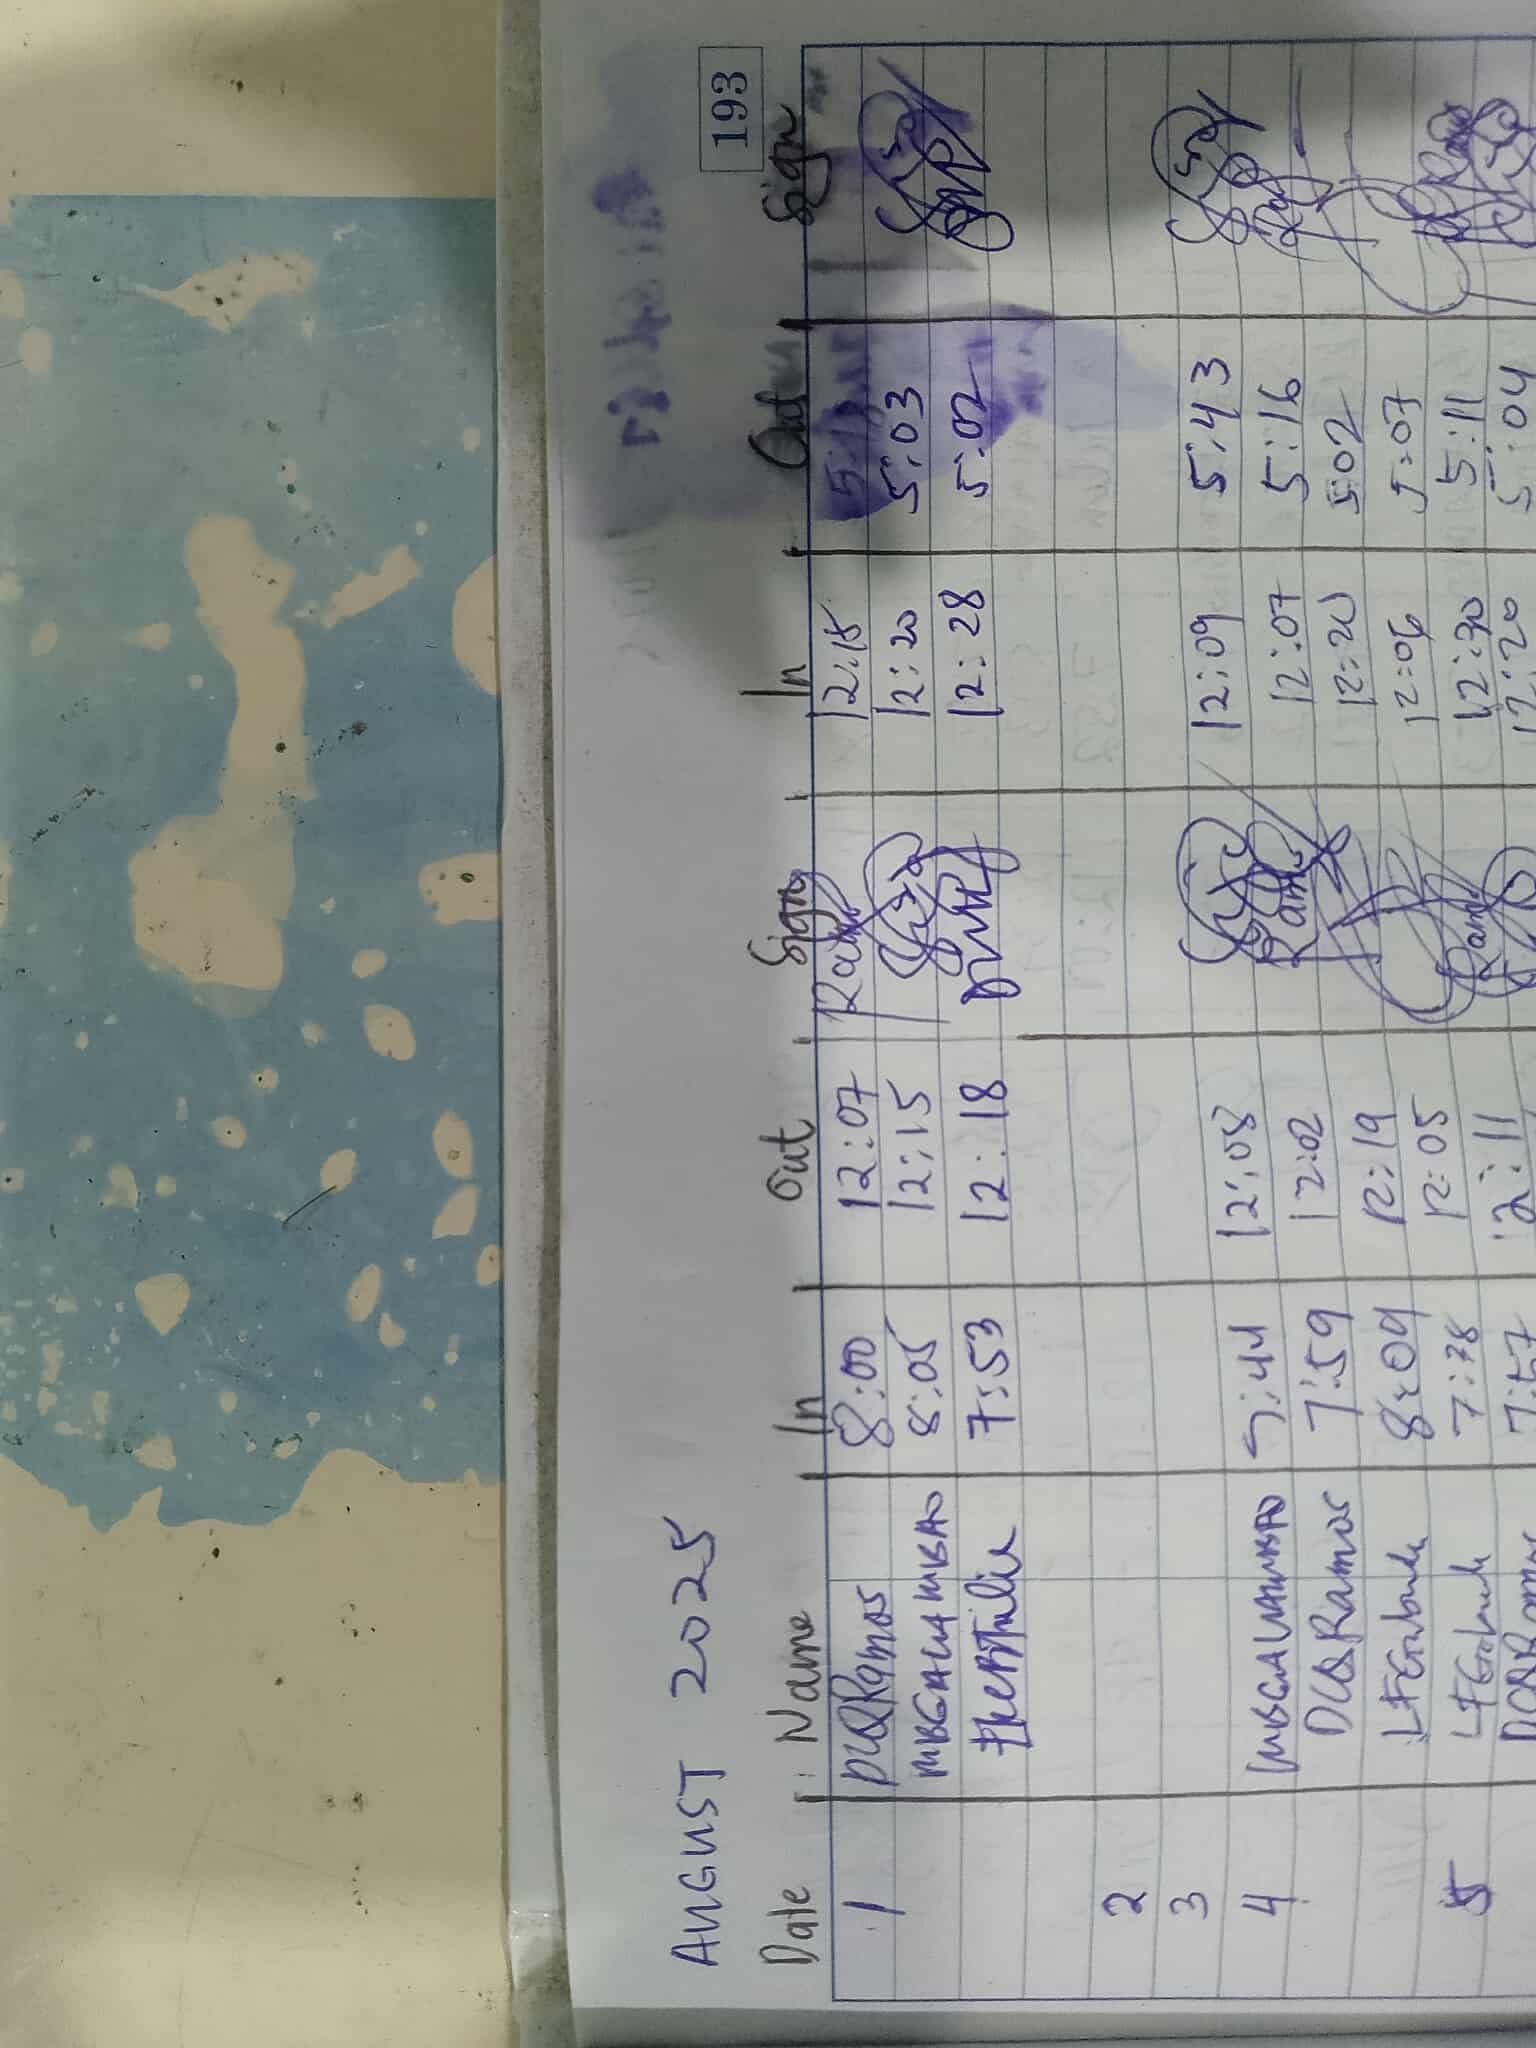 193
AUGUST 2025
Date Name In Out Sign In Out Sign
1 DCQRamos 8:00 12:07 Ramos 12:15
MBGALAMBAO 8:05 12:15 12:20 5:03
7:53 12:18 12:28 5:02
2
3
4 MBGALAMBAO 12:08 12:09 5:43
DCQRamos 7:59 12:02 Ramos 12:07 5:16
8:09 12:19 12:20 5:02
5 7:38 12:05 12:06 5:07
DCQRamos 7:57 12:11 Ramos 12:30 5:11
12:20 5:04